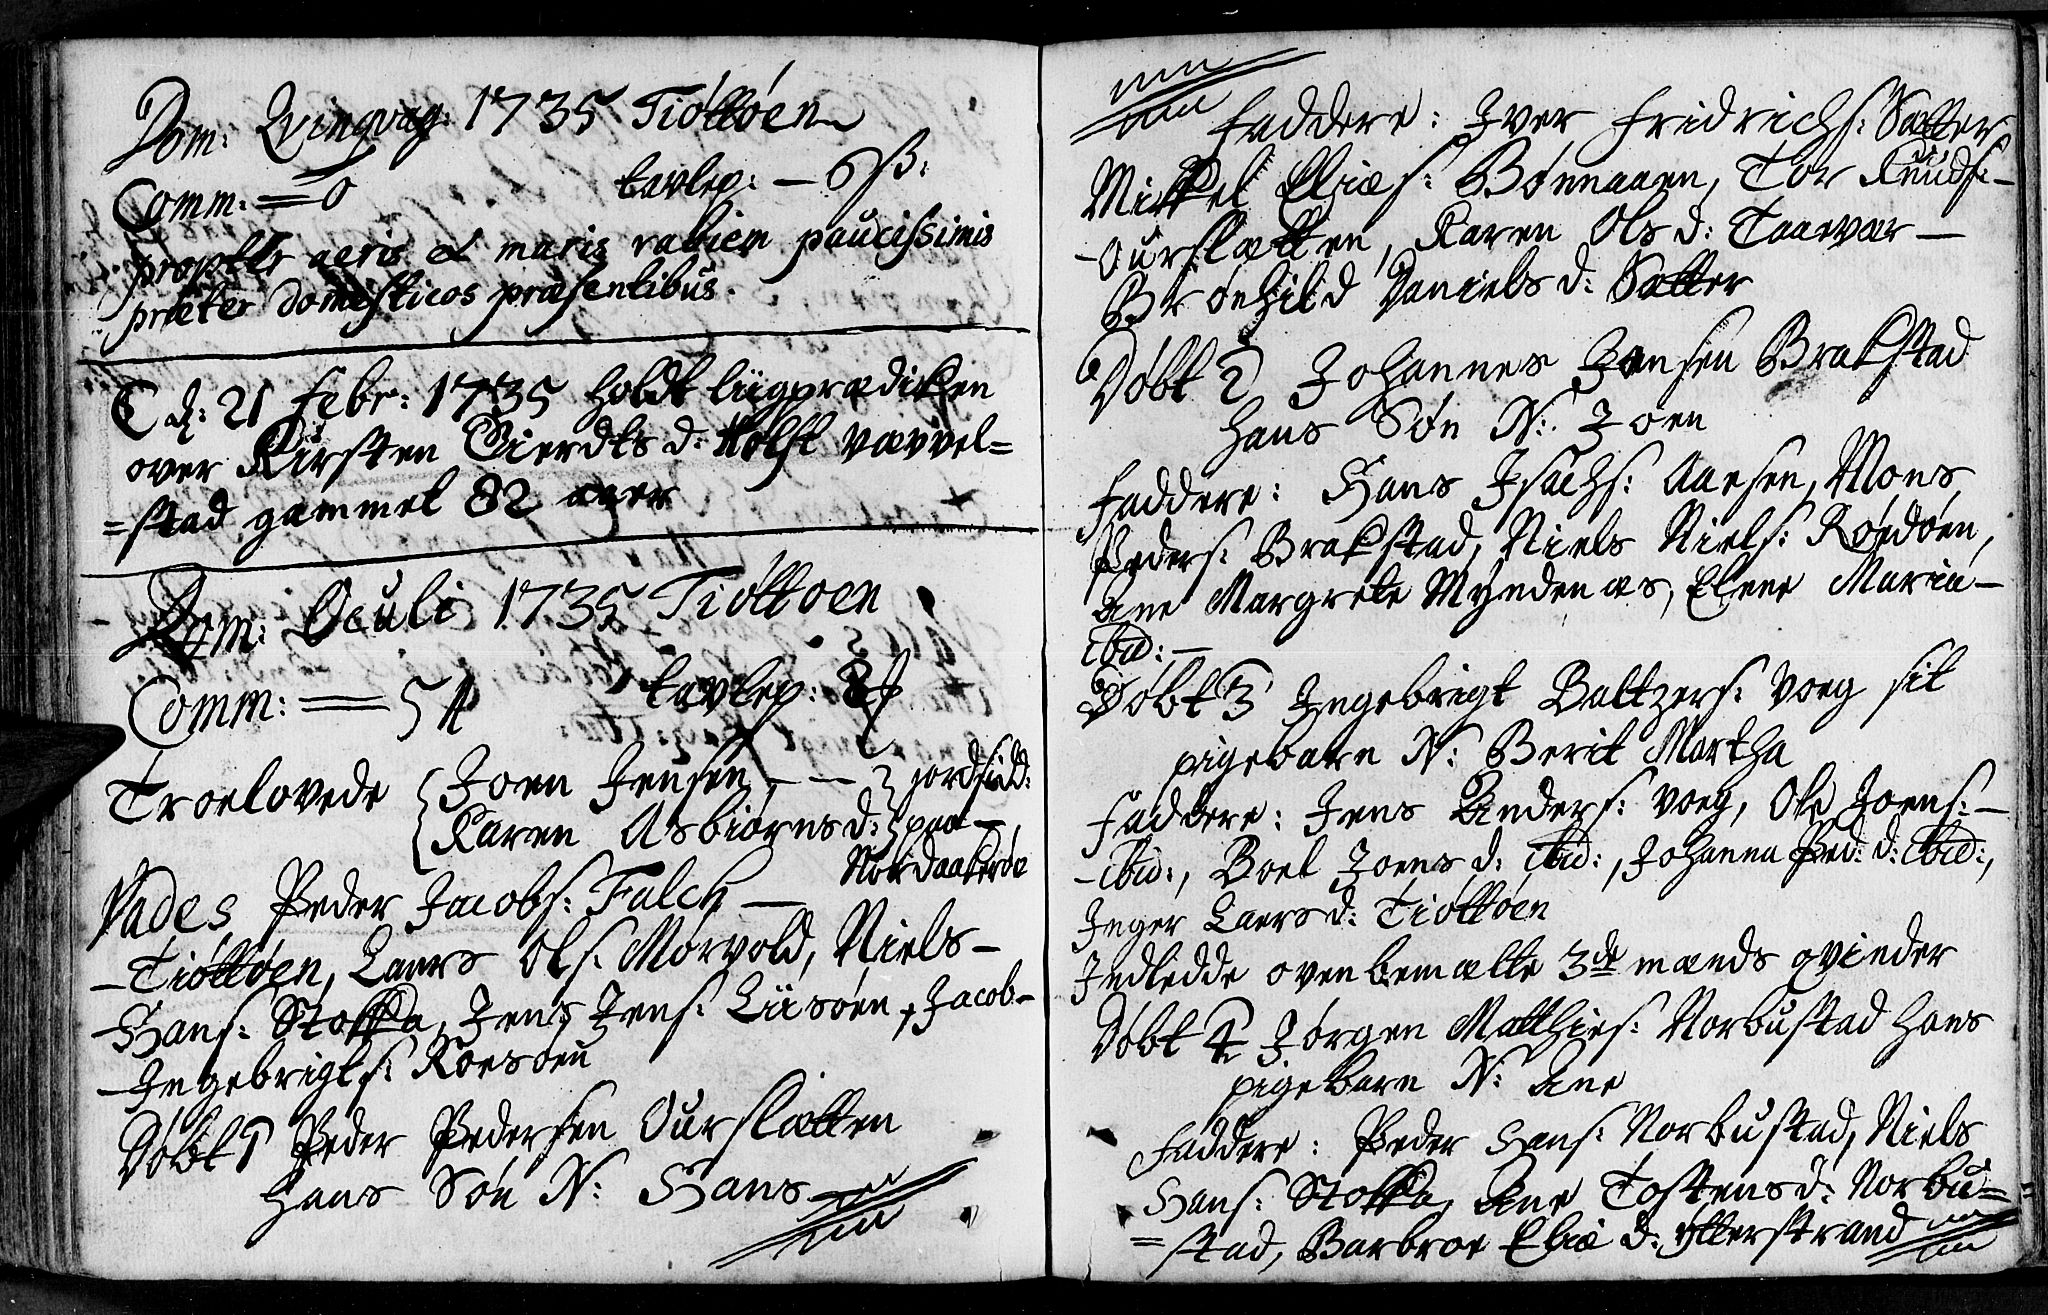 Dom: Qvinqvag: 1735 Tiøttøen
Comm: = 0 tavlep: – 6 ß:
propter aeris & maris rabiem paucissimis
præter domesticos præsentibus.
d: 21 Febr: 1735 holdt liigprædiken
over Kirsten Gierdts d: Holst Vævvel=
=stad gammel 82 aaer
Dom: Oculi 1735 Tiøttøen
Comm: = 54 tavlep:
Troelovede { Joen Jensen – – } jordsidd:
Karen Asbiørns d: } paa –
Nordaakerøe
Vades Peder Jacobs: Falch –
– Tiøttøen, Laers Ols: Morvold, Niels –
– Hans: Stokka, Jens Jens: Liisøen, Jacob –
– Ingebrigts: Roesøen
Døbt 1 Peder Pedersen Ourslætten
hans Søn N: Hans
Faddere: Iver Fridrichs: Sætter
Mikkel Eliæs: Bønnaaen, Tor Knuds: –
– Ourslætten, Karen Ols d: Taaevær –
Brønhild Daniels d: Sætter
Døbt 2 Johannes Jensen Brakstad
hans Søn N: Joen
Faddere: Hans Isachs: Aaesen, Mons
Peders: Brakstad, Niels Niels: Røedøen,
Ane Margrete Myndenæs, Elene Maria –
ibid: –
Døbt 3 Ingebrigt Baltzers: Voeg sit
pigebarn N: Berit Martha
Faddere: Jens Anders: Voeg, Ole Joens: –
– ibid:, Boel Joens d: ibid:, Johanna Ped: d: ibid:,
Inger Laers d: Tiøttøen
Indledde ovenbemælte 3de mænds qvinder
Døbt 4 Jørgen Matthies: Norbustad hans
pigebarn N: Ane
Faddere: Peder Hans: Norbustad, Niels
Hans: Stokka, Ane Tostens d: Norbu=
=stad, Barbroe Eliæ d: Ytterstrand